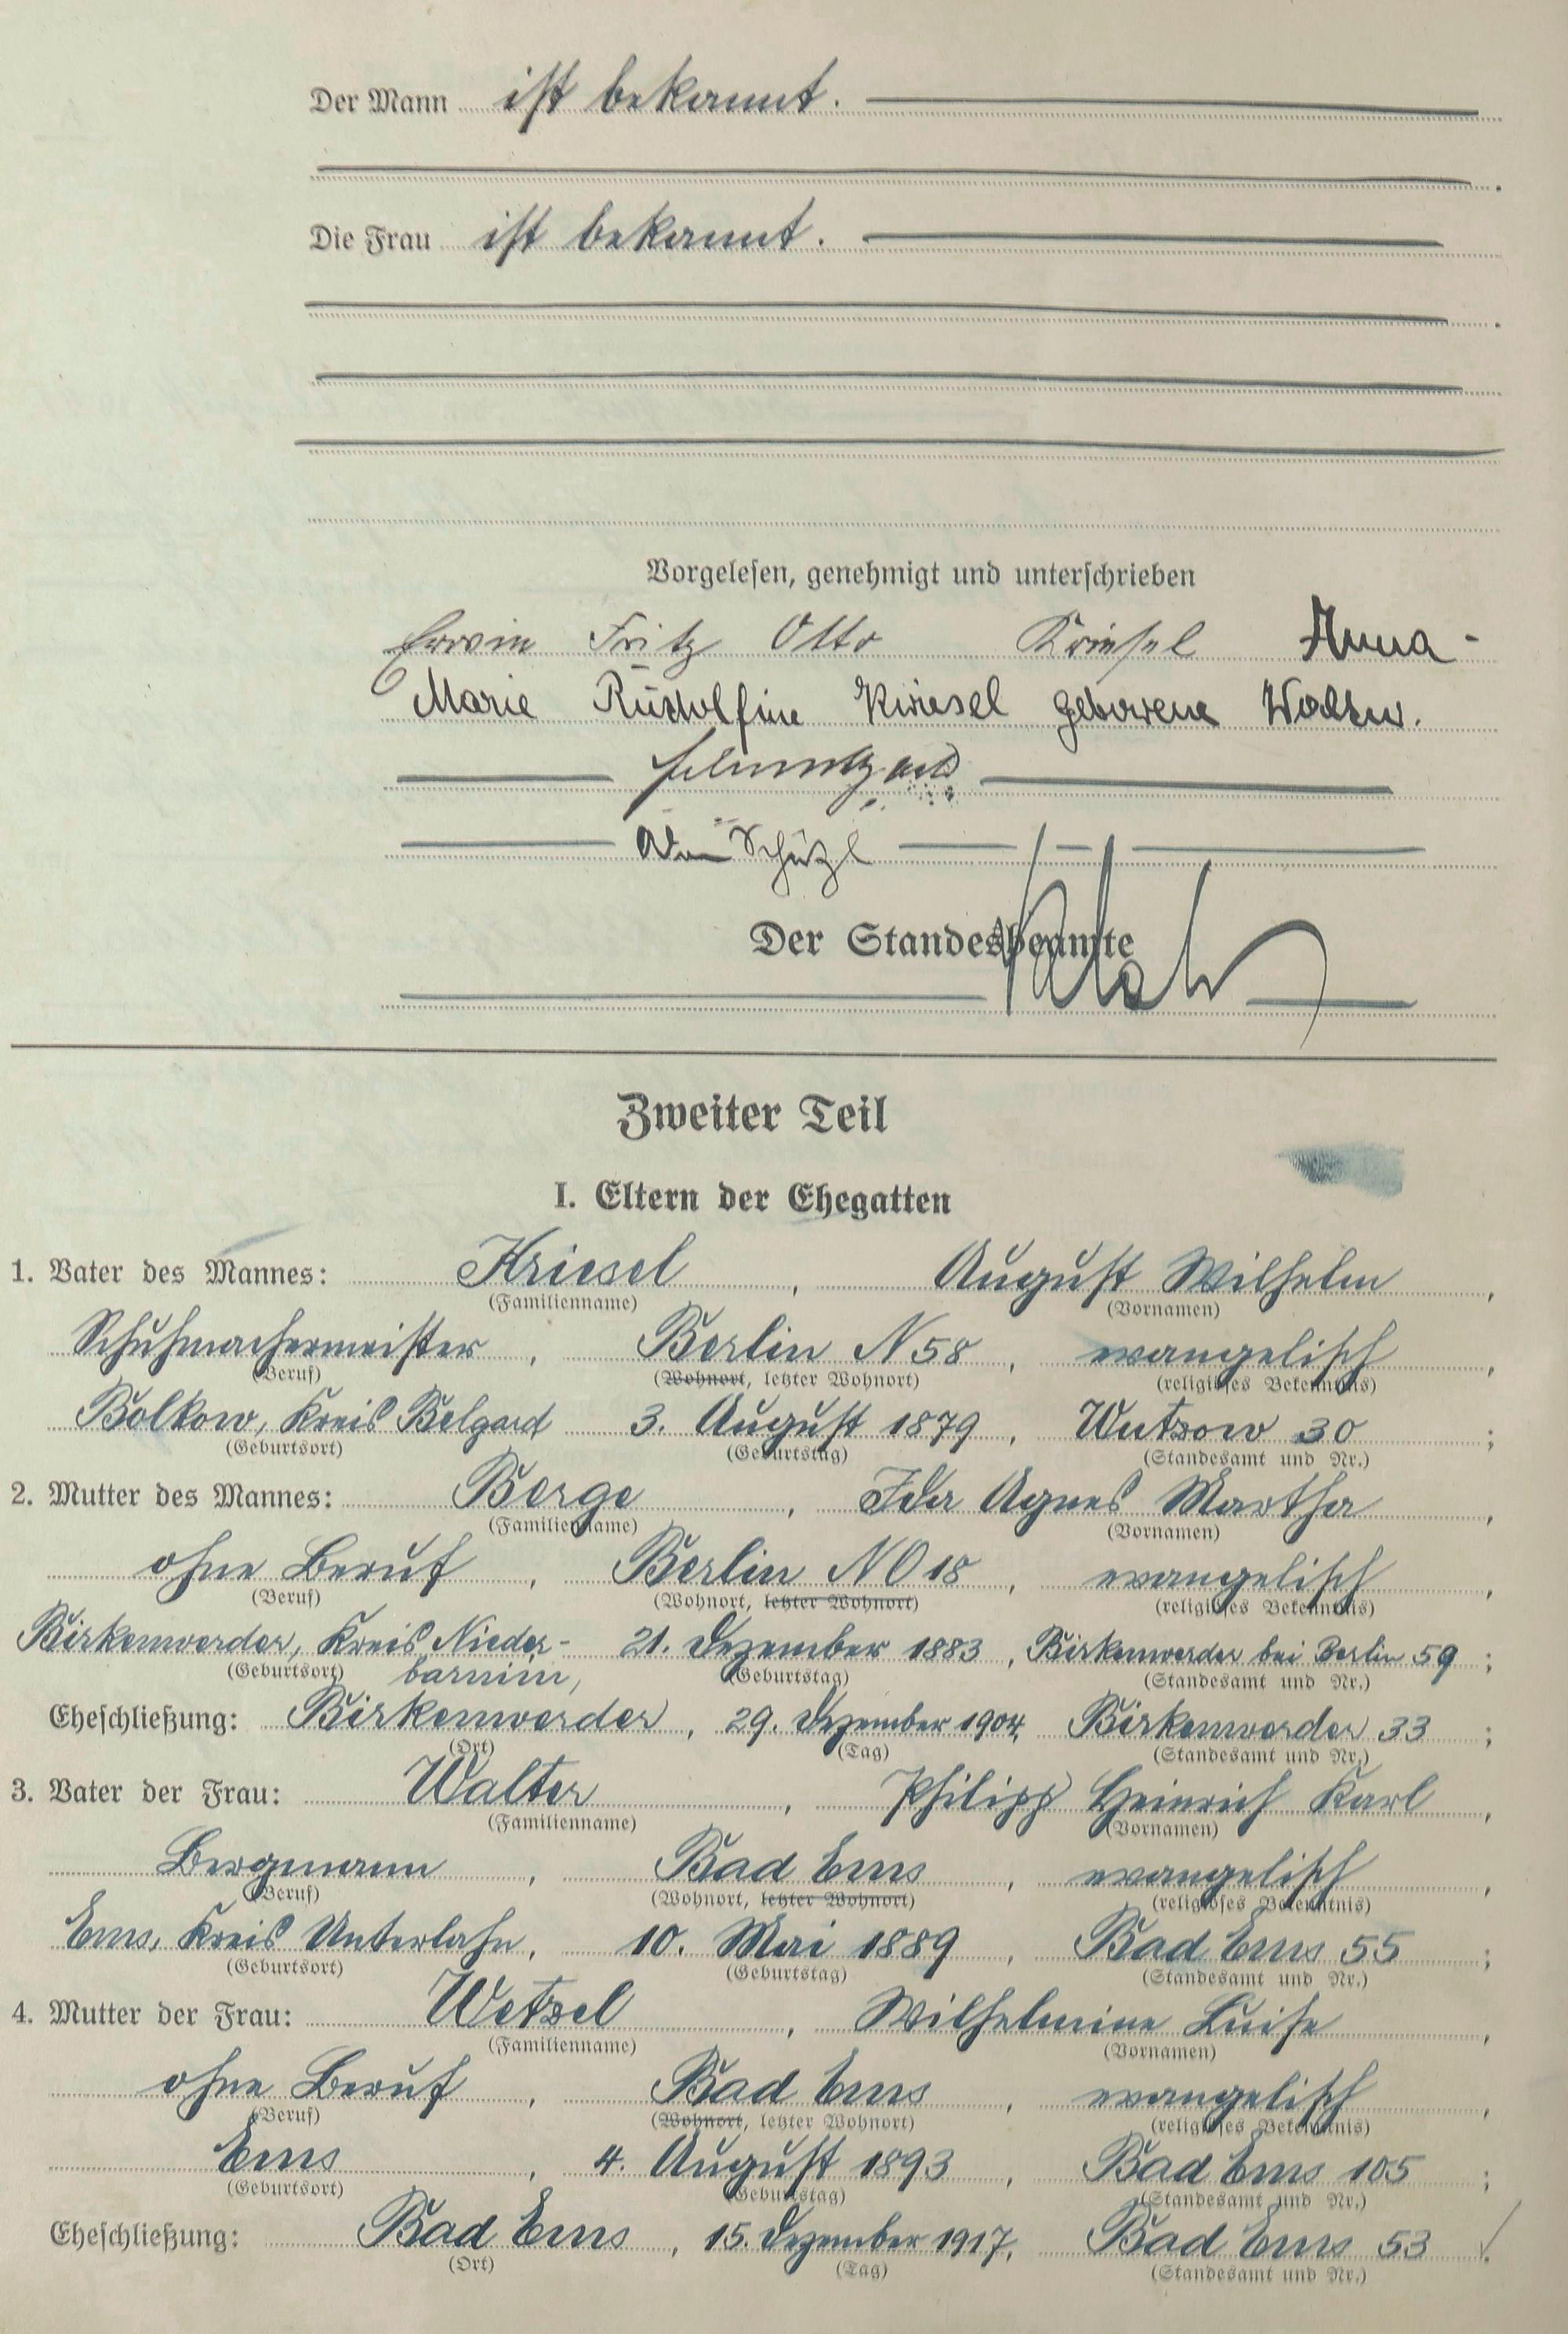 Der Mann ist bekannt.
Die Frau ist bekannt.
Vorgelesen, genehmigt und unterschrieben
Erwin Fritz Otto Kriesel Anna-
Marie Rudolfine Kriesel geborene Walter.
Der Standesbeamte
Zweiter Teil
I. Eltern der Ehegatten
1. Vater des Mannes: Kriesel, August Wilhelm,
(Familienname) (Vornamen)
Schuhmachermeister, Berlin N 58, evangelisch,
(Beruf) (Wohnort, letzter Wohnort) (religiöses Bekenntnis)
Bolkow, Kreis Belgard 3. August 1879, Wutzow 30;
(Geburtsort) (Geburtstag) (Standesamt und Nr.)
2. Mutter des Mannes: Berge, Ida Agnes Martha,
(Familienname) (Vornamen)
ohne Beruf, Berlin NO 18, evangelisch,
(Beruf) (Wohnort, letzter Wohnort) (religiöses Bekenntnis)
Birkenwerder, Kreis Nieder- 21. Dezember 1883, Birkenwerder bei Berlin 59;
(Geburtsort) barnim, (Geburtstag) (Standesamt und Nr.)
Eheschließung: Birkenwerder, 29. Dezember 1904, Birkenwerder 33;
(Ort) (Tag) (Standesamt und Nr.)
3. Vater der Frau: Walter, Philipp Heinrich Karl,
(Familienname) (Vornamen)
Bergmann, Bad Ems, evangelisch,
(Beruf) (Wohnort, letzter Wohnort) (religiöses Bekenntnis)
Ems, Kreis Unterlahn, 10. Mai 1889, Bad Ems 55;
(Geburtsort) (Geburtstag) (Standesamt und Nr.)
4. Mutter der Frau: Wetzel, Wilhelmine Luise,
(Familienname) (Vornamen)
ohne Beruf, Bad Ems, evangelisch,
(Beruf) (Wohnort, letzter Wohnort) (religiöses Bekenntnis)
Ems, 4. August 1893, Bad Ems 105;
(Geburtsort) (Geburtstag) (Standesamt und Nr.)
Eheschließung: Bad Ems, 15. Dezember 1917, Bad Ems 53.
(Ort) (Tag) (Standesamt und Nr.)